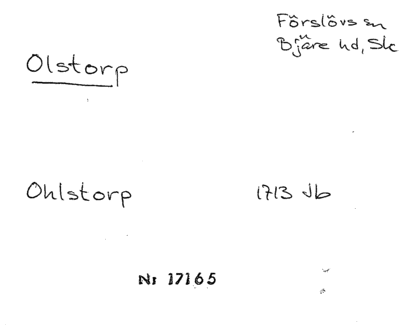 Förslövs sn
Bjäre hd, Sk
Olstorp
Ohlstorp 1713 Jb
Nr 17165